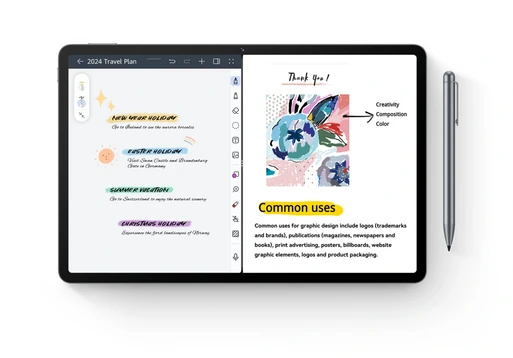 2024 Travel Plan
NEW YEAR HOLIDAY
Go to Iceland to see the aurora borealis
EASTER HOLIDAY
Visit Swan Castle and Brandenburg
Gate in Germany
SUMMER VACATION
Go to Switzerland to enjoy the natural scenery
CHRISTMAS HOLIDAY
Experience the fjord landscapes of Norway
Thank You!
Creativity
Composition
Color
Common uses
Common uses for graphic design include logos (trademarks
and brands), publications (magazines, newspapers and
books), print advertising, posters, billboards, website
graphic elements, logos and product packaging.